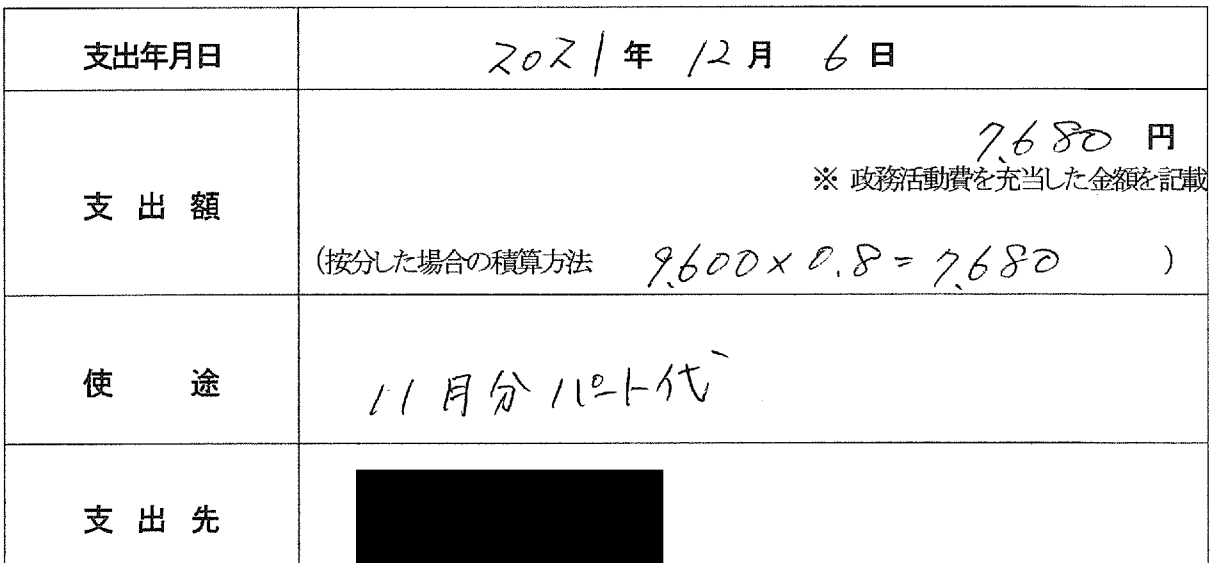 支出年月日 2021年 12月 6日
7,680 円
※ 政務活動費を充当した金額を記載
支出額
(按分した場合の積算方法 9,600×0.8=7,680 )
使途 11月分パート代
支出先